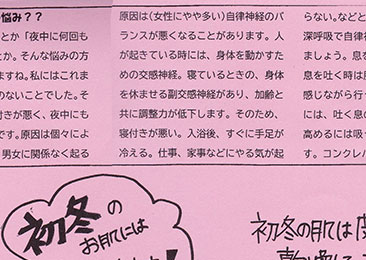 悩み??
とか「夜中に何回も
とか。そんな悩みの方
ますね。私にはこれま
のないことでした。そ
付きが悪く、夜中にも
です。原因は個々によ
男女に関係なく起る
原因は(女性にやや多い)自律神経のバ
ランスが悪くなることがあります。人
が起きている時には、身体を動かすた
めの交感神経。寝ているときの、身体
を休ませる副交感神経があり、加齢と
共に調整力が低下します。そのため、
寝付きが悪い。入浴後、すぐに手足が
冷える。仕事、家事などにやる気が起
らない。などと
深呼吸で自律神
ましょう。息を
息を吐き時は腹
感じながら行っ
には、吐く息の
高めるには吸っ
す。コンクレバ
初冬の
お肌には
初冬の肌は